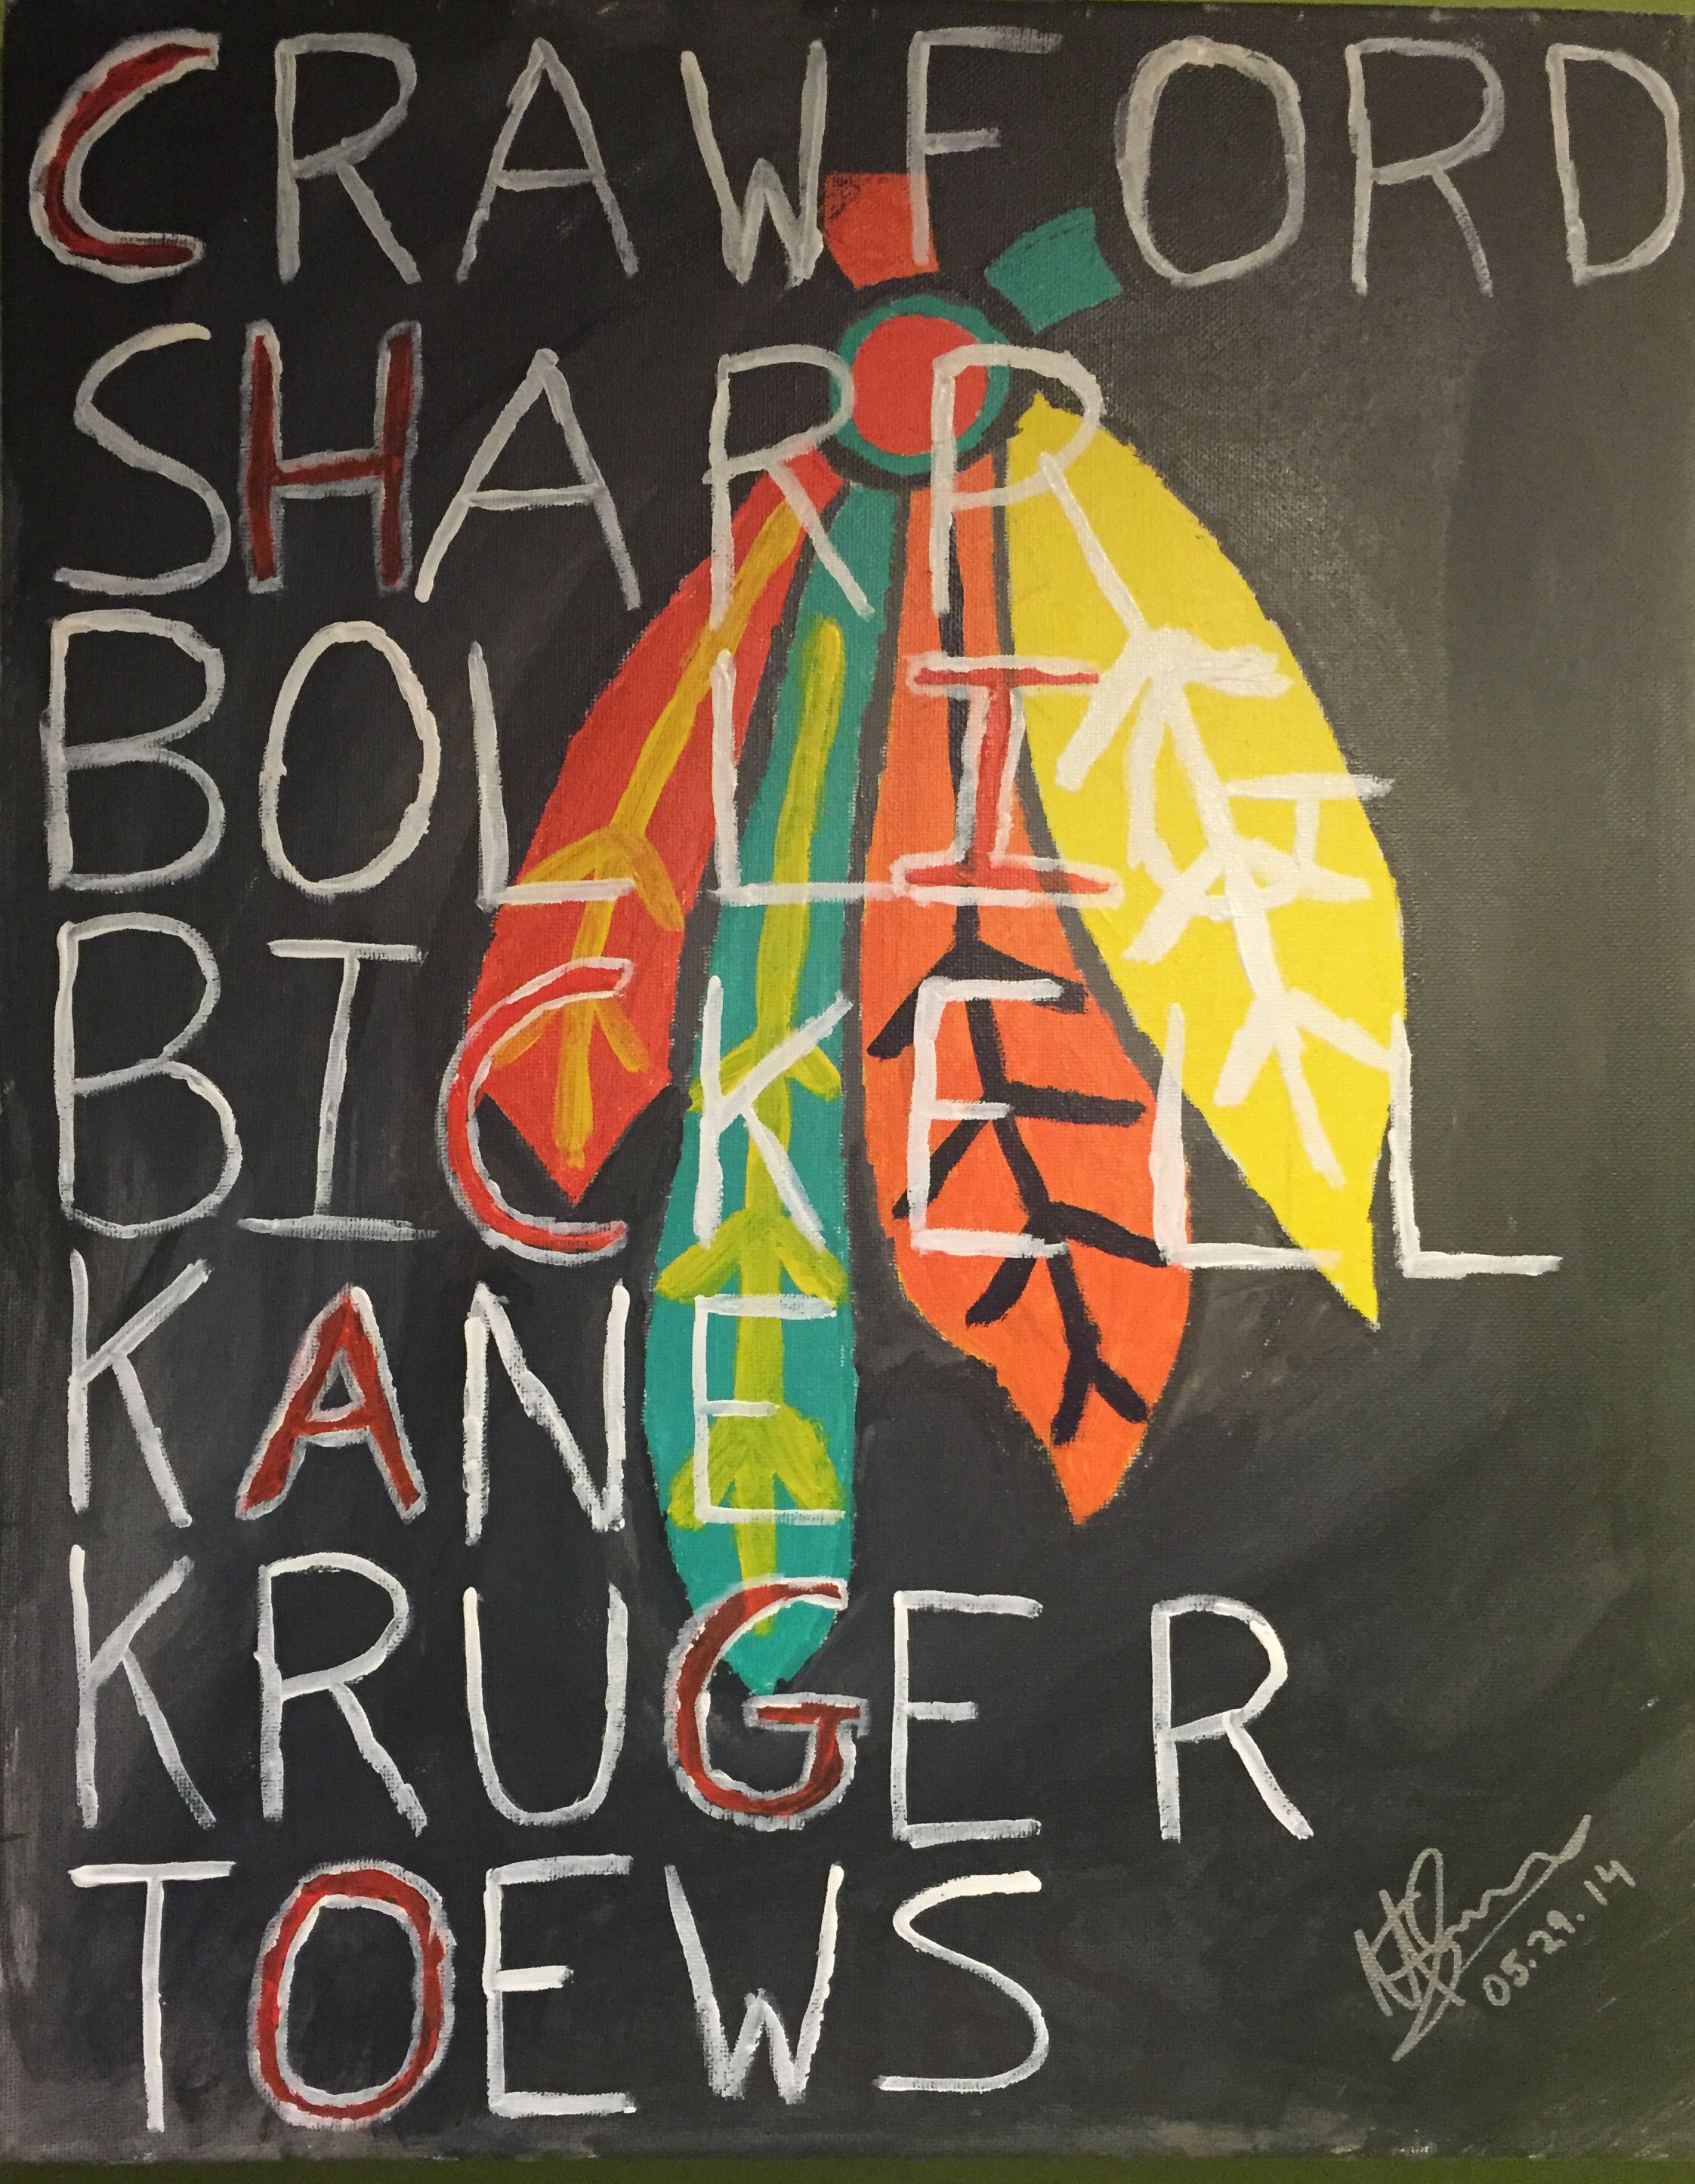 CRAWFORD
SHARP
BOLLIG
BICKELL
KANE
KRUGER
TOEWS
05.29.14